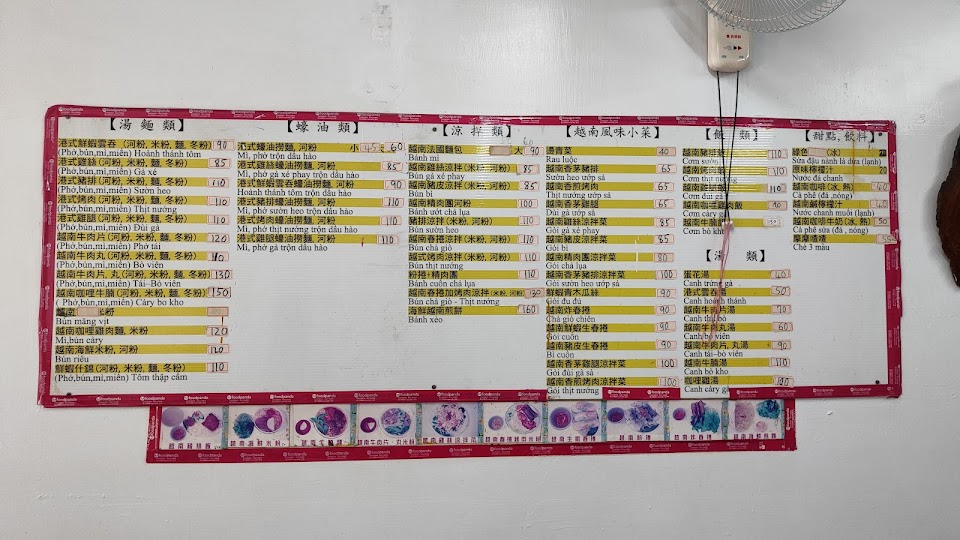 【湯 麵 類】
港式鮮蝦雲吞 (河粉, 米粉, 麵, 冬粉) 90
(Phở,bún,mì,miến) Hoành thánh tôm
港式雞絲 (河粉, 米粉, 麵, 冬粉) 85
(Phở,bún,mì,miến) Gà xé
港式豬排 (河粉, 米粉, 麵, 冬粉) 110
(Phở,bún,mì,miến) Sườn heo
港式烤肉 (河粉, 米粉, 麵, 冬粉) 110
(Phở,bún,mì,miến) Thịt nướng
港式雞腿 (河粉, 米粉, 麵, 冬粉) 110
(Phở,bún,mì,miến) Đùi gà
越南牛肉片 (河粉, 米粉, 麵, 冬粉) 120
(Phở,bún,mì,miến) Phở tái
越南牛肉丸 (河粉, 米粉, 麵, 冬粉) 110
(Phở,bún,mì,miến) Bò viên
越南牛肉片, 丸 (河粉, 米粉, 麵, 冬粉) 130
(Phở,bún,mì,miến) Tái–Bò viên
越南咖哩牛腩 (河粉, 米粉, 麵, 冬粉) 150
(Phở,bún,mì,miến) Cảry bò kho
越南 米粉
Bún măng vịt
越南咖哩雞肉麵, 米粉 120
Mì,bún cảry
越南海鮮米粉, 河粉 120
Bún riêu
鮮蝦什錦 (河粉, 米粉, 麵, 冬粉) 110
(Phở,bún,mì,miến) Tôm thập cẩm
【蠔 油 類】
蠔油撈麵, 河粉 小 45 大 60
Mì, phở trộn dầu hào
港式雞絲蠔油撈麵, 河粉 85
Mì, phở gà xé phay trộn dầu hào
港式鮮蝦雲吞蠔油撈麵, 河粉 90
Hoành thánh tôm trộn dầu hào
港式豬排蠔油撈麵, 河粉 110
Mì, phở sườn heo trộn dầu hào
港式烤肉蠔油撈麵, 河粉 110
Mì, phở thịt nướng trộn dầu hào
港式雞腿蠔油撈麵, 河粉 110
Mì, phở gà trộn dầu hào
【涼 拌 類】
越南法國麵包 大 90
Bánh mì
越南雞絲涼拌(米粉, 河粉) 85
Bún gà xé phay
越南豬皮涼拌(米粉, 河粉) 85
Bún bì
越南精肉團河粉 100
Bánh ướt chả lụa
豬排涼拌(米粉, 河粉) 110
Bún sườn heo
越南春捲涼拌(米粉, 河粉) 110
Bún chả giò
越式烤肉涼拌(米粉, 河粉) 110
Bún thịt nướng
粉捲+精肉團 110
Bánh cuốn chả lụa
越南春捲加烤肉涼拌(米粉, 河粉) 130
Bún chả giò - Thịt nướng
海鮮越南煎餅 160
Bánh xèo
【越南風味小菜】
燙青菜 40
Rau luộc
越南香茅豬排 65
Sườn heo ướp sả
越南香茅烤肉 65
Thịt nướng ướp sả
越南香茅雞腿 65
Đùi gà ướp sả
越南雞絲涼拌菜 85
Gỏi gà xé phay
越南豬皮涼拌菜 85
Gỏi bì
越南精肉團涼拌菜 80
Gỏi chả lụa
越南香茅豬排涼拌菜 100
Gỏi sườn heo ướp sả
鮮蝦青木瓜絲 90
Gỏi đu đủ
越南炸春捲 90
Chả giò chiên
越南鮮蝦生春捲 90
Gỏi cuốn
越南豬皮生春捲 90
Bì cuốn
越南香茅雞腿涼拌菜 100
Gỏi đùi gà sả
越南香煎烤肉涼拌菜 100
Gỏi thịt nướng
【飯 類】
越南豬排飯 110
Cơm sườn
越南烤肉飯 110
Cơm thịt nướng
越南雞腿飯 110
Cơm đùi gà
越南咖哩雞肉飯
Cơm cảry gà
越南牛腩飯 150
Cơm bò kho
【湯 類】
蛋花湯 40
Canh trứng gà
港式雲吞湯 50
Canh hoành thánh
越南牛肉片湯 70
Canh thịt bò
越南牛肉丸湯 60
Canh bò viên
越南牛肉片, 丸湯 90
Canh tái–bò viên
越南牛腩湯 110
Canh bò kho
咖哩雞湯
Canh cảry gà
【甜點, 飲料】
綠色 (冰)
Sữa đậu nành lá dứa (lạnh)
原味檸檬汁 20
Nước đá chanh
越南咖啡(冰, 熱) 40
Cà phê (đá, nóng)
越南鹹檸檬汁 40
Nước chanh muối (lạnh)
越南咖啡牛奶(冰, 熱) 50
Cà phê sữa (đá, nóng)
摩摩喳喳 55
Chè 3 màu
foodpanda
越南海鮮米粉
越南牛肉片、丸米粉
越南生春捲
越南炸春捲